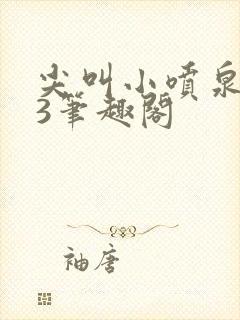 尖叫小喷泉
3筆趣阁
袖唐